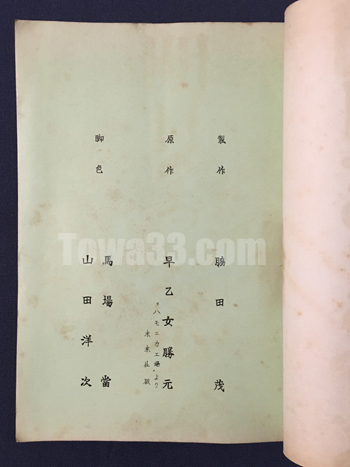 製作
脇田 茂
原作
早乙女勝元
"ハモニカ工場"より
未来社版
脚色
馬場 當
山田洋次
Towa33.com